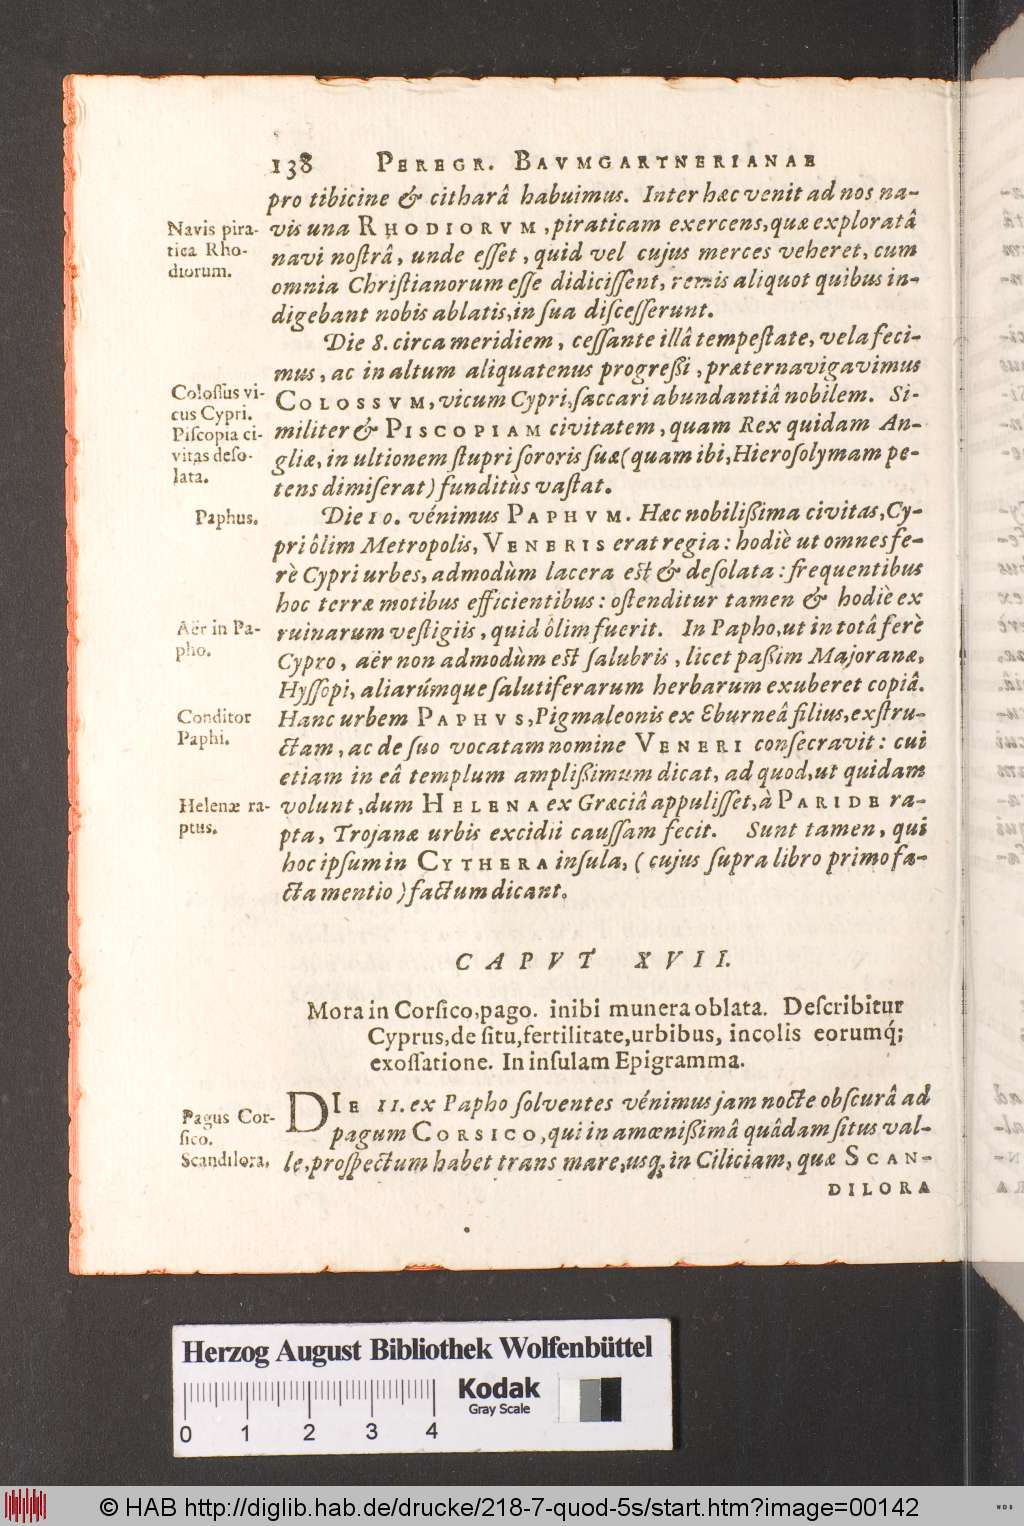 138 PEREGR. BAVMGARTNERIANAE
pro tibicine & citharâ habuimus. Inter hæc venit ad nos na-
Navis pira-
tica Rho-
diorum.
vis una RHODIORVM, piraticam exercens, quæ exploratâ
navi nostrâ, unde esset, quid vel cujus merces veheret, cum
omnia Christianorum esse didicissent, remis aliquot quibus in-
digebant nobis ablatis, in sua discesserunt.
Die 8. circa meridiem, cessante illâ tempestate, vela feci-
mus, ac in altum aliquatenus progreßi, præternavigavimus
Colossus vi-
cus Cypri.
Piscopia ci-
vitas deso-
lata.
COLOSSVM, vicum Cypri, saccari abundantiâ nobilem. Si-
militer & PISCOPIAM civitatem, quam Rex quidam An-
gliæ, in ultionem stupri sororis suæ (quam ibi, Hierosolymam pe-
tens dimiserat) funditùs vastat.
Paphus.
Die 10. vénimus PAPHVM. Hæc nobilißima civitas, Cy-
pri ôlim Metropolis, VENERIS erat regia: hodiè ut omnes fe-
rè Cypri urbes, admodùm lacera est & desolata: frequentibus
hoc terræ motibus efficientibus: ostenditur tamen & hodiè ex
Aër in Pa-
pho.
ruinarum vestigiis, quid ôlim fuerit. In Papho, ut in totâ ferè
Cypro, aër non admodùm est salubris, licet paßim Majoranæ,
Hyssopi, aliarúmque salutiferarum herbarum exuberet copiâ.
Conditor
Paphi.
Hanc urbem PAPHVS, Pigmaleonis ex Eburneâ filius, exstru-
ctam, ac de suo vocatam nomine VENERI consecravit: cui
etiam in eâ templum amplißimum dicat, ad quod, ut quidam
Helenæ ra-
ptus.
volunt, dum HELENA ex Græciâ appulisset, à PARIDE ra-
pta, Trojanæ urbis excidii caussam fecit. Sunt tamen, qui
hoc ipsum in CYTHERA insula, (cujus supra libro primo fa-
cta mentio) factum dicant.
CAPVT XVII.
Mora in Corsico, pago. inibi munera oblata. Describitur
Cyprus, de situ, fertilitate, urbibus, incolis eorumq́;
exossatione. In insulam Epigramma.
Pagus Cor-
sico.
Scandilora.
DIE 11. ex Papho solventes vénimus jam nocte obscurâ ad
pagum CORSICO, qui in amœnißimâ quâdam situs val-
le, prospectum habet trans mare, usq; in Ciliciam, quæ SCAN-
DILORA
Herzog August Bibliothek Wolfenbüttel
Kodak
Gray Scale
0 1 2 3 4
© HAB http://diglib.hab.de/drucke/218-7-quod-5s/start.htm?image=00142